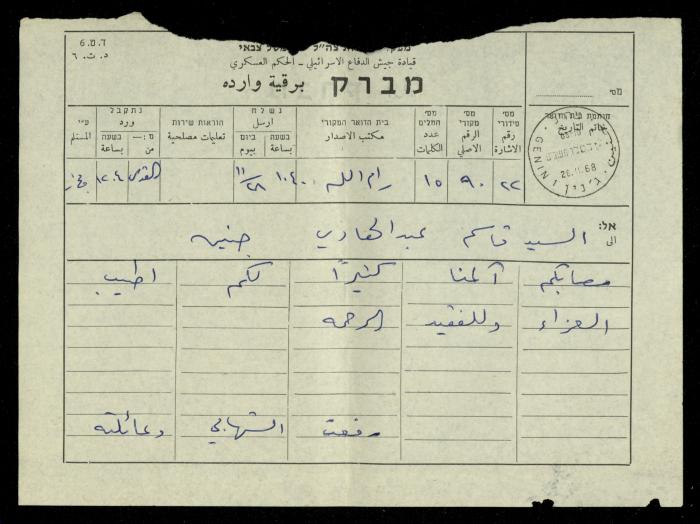 ד.ס.6
د.ت.٦
קيادة جيش الدفاع الاسرائيلي - الحكم العسكري
מברק برقية وارده
מס׳
חותמת בית הדואר
خاتم التاريخ
מס׳ סידורי
رقم الاشارة
מס׳ מקורי
الرقم الاصلي
מס׳ המלים
عدد الكلمات
בית הדואר המקורי
مكتب الاصدار
נשלח
ارسل
בשעה
بساعة
ביום
بيوم
הוראות שירות
تعليمات مصلحية
נתקבל
ورد
מ:—
من
בשעה
بساعة
ע״י
المستلم
GENIN
26.11.68
٢٢ ٩٠ ١٥ رام الله ١٠٤٠ ٢٨/١١ القدس ١٢٠٤
אל:
الى
السيد قاسم عبد الهادي جنين
مصابكم آلمنا كثيرًا لكم اطيب
العزاء وللفقيد الرحمه
رفعت الشهابي وعائلته